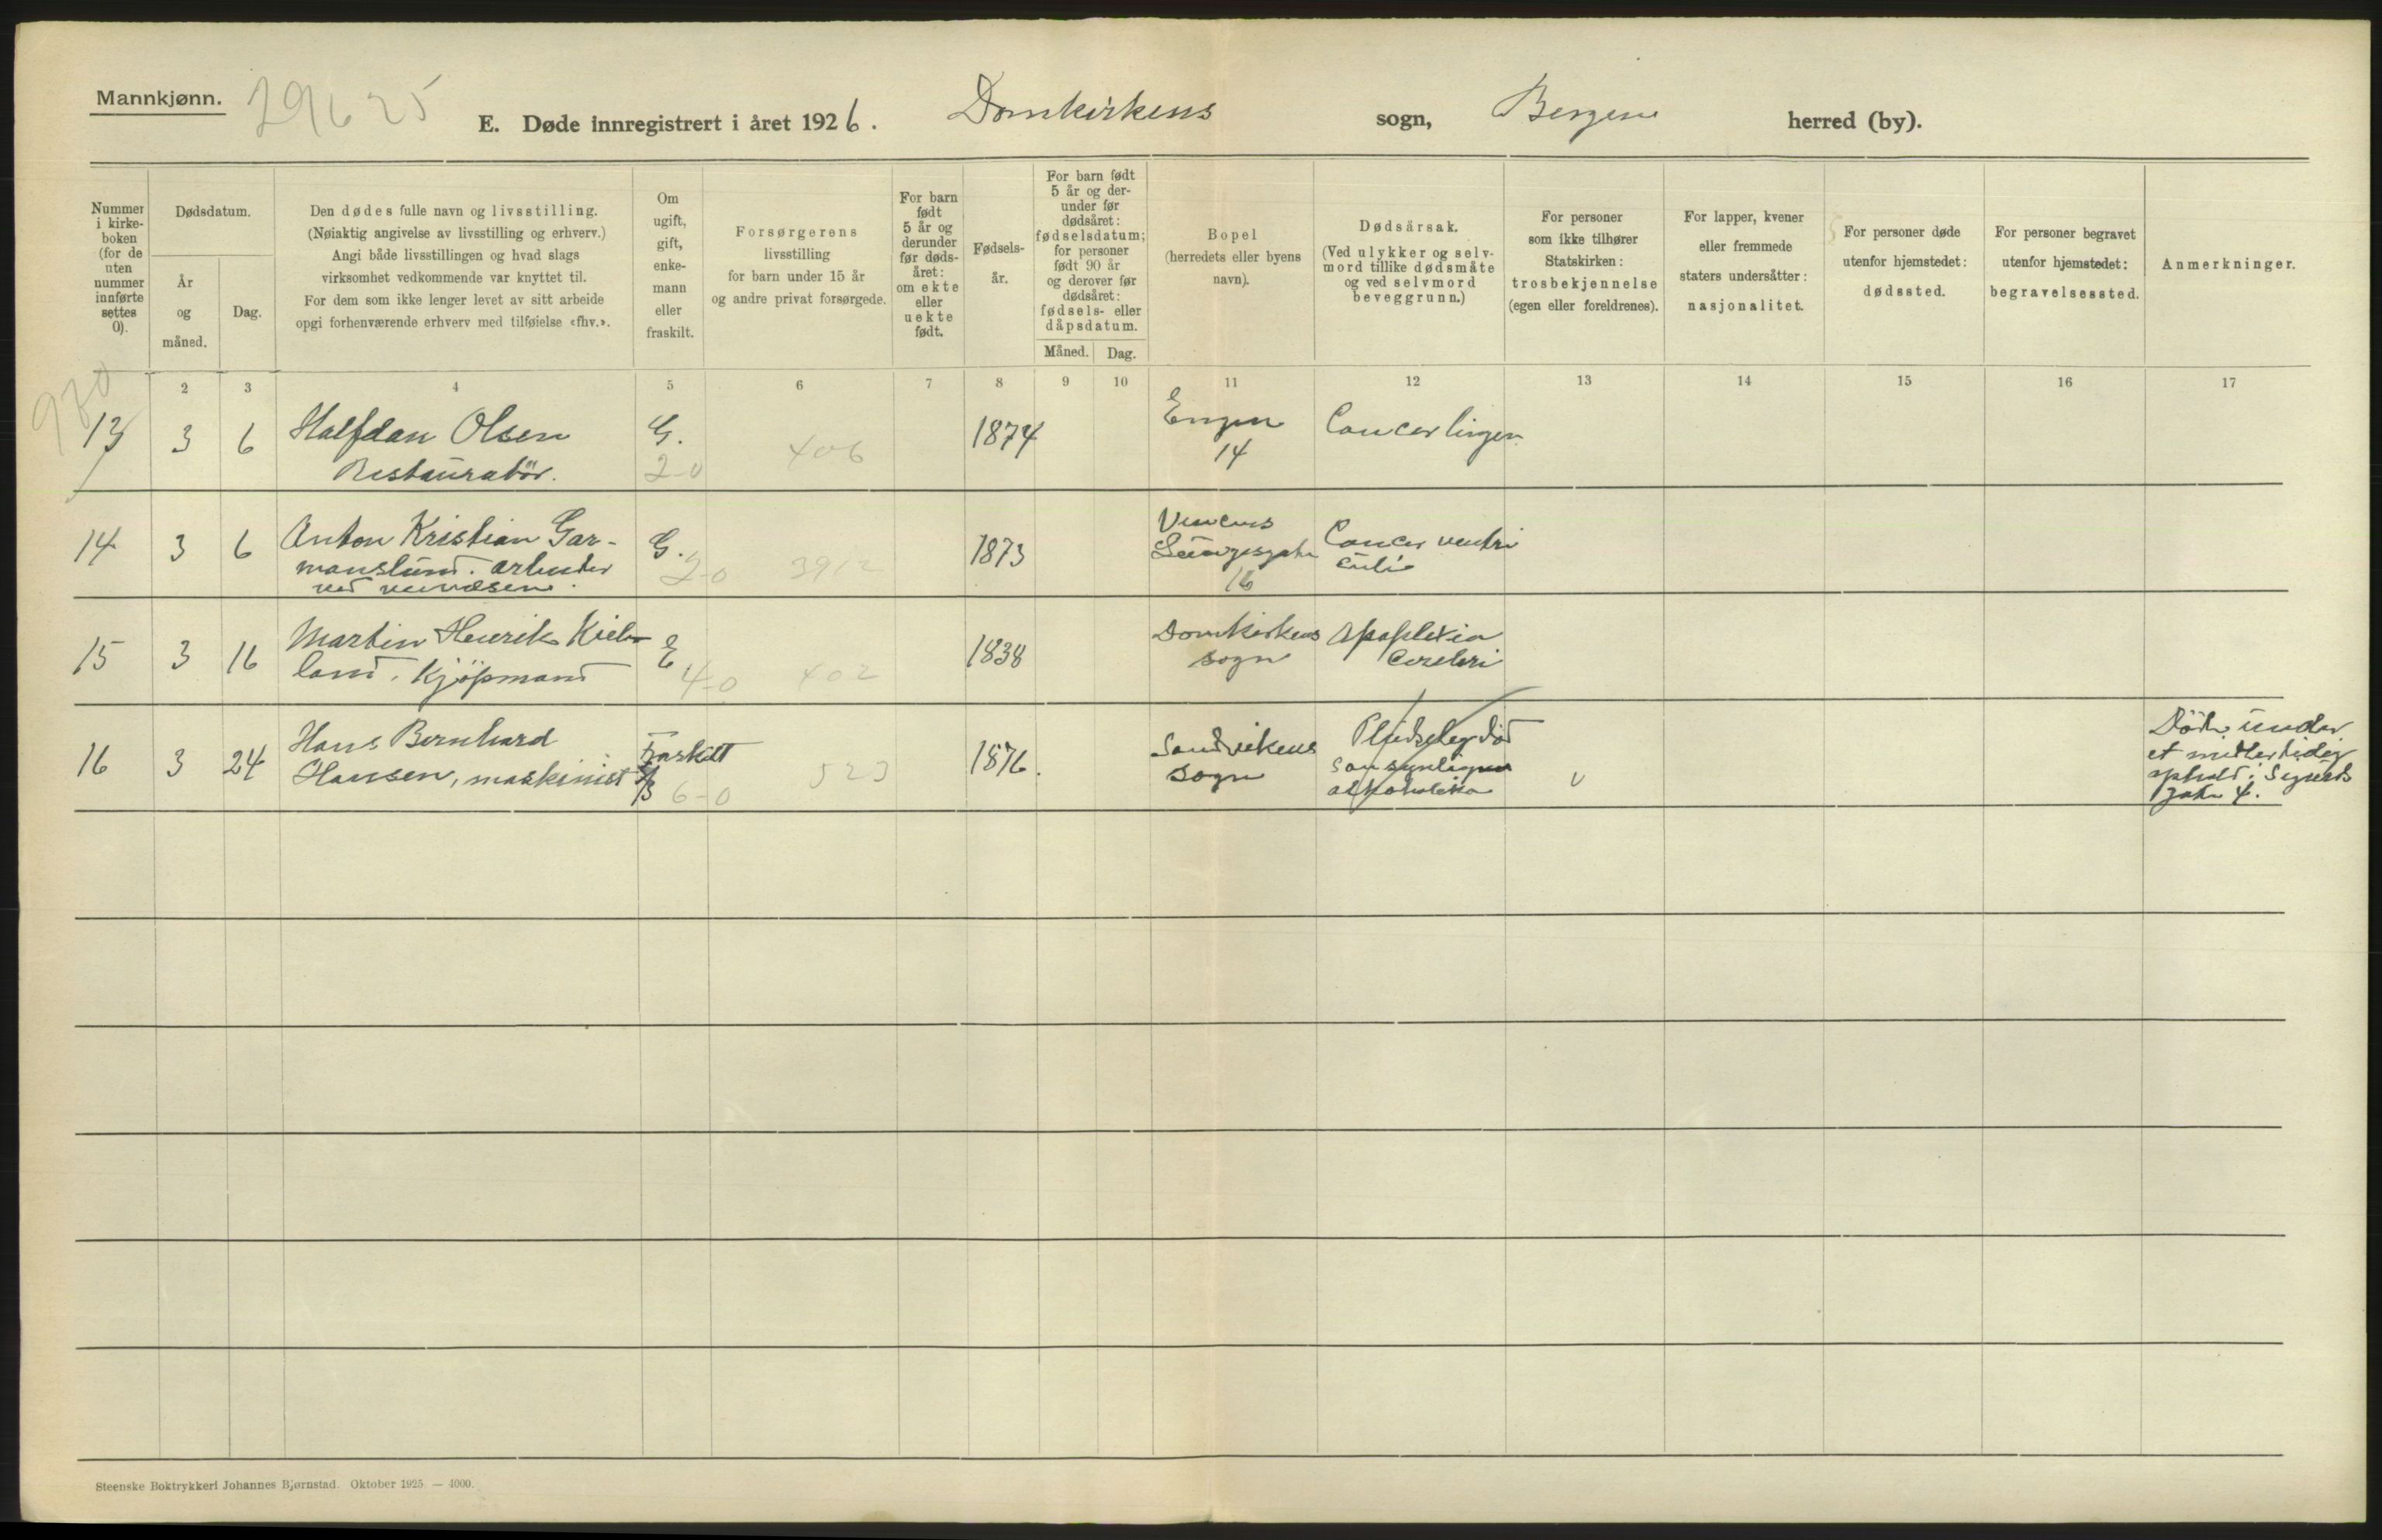 Mannkjønn.
29625
E. Døde innregistrert i året 1926. Domkirkens sogn, Bergen herred (by).
Nummer
i kirke-
boken
(for de
uten
nummer
innførte
settes
0).
Dødsdatum.
År
og
måned.
Dag.
Den dødes fulle navn og livsstilling.
(Nøiaktig angivelse av livsstilling og erhverv.)
Angi både livsstillingen og hvad slags
virksomhet vedkommende var knyttet til.
For dem som ikke lenger levet av sitt arbeide
opgi forhenværende erhverv med tilføielse «fhv.».
Om
ugift,
gift,
enke-
mann
eller
fraskilt.
Forsørgerens
livsstilling
for barn under 15 år
og andre privat forsørgede.
For barn
født
5 år og
derunder
før døds-
året:
om ekte
eller
uekte
født.
Fødsels-
år.
For barn født
5 år og der-
under før
dødsåret:
fødselsdatum;
for personer
født 90 år
og derover før
dødsåret:
fødsels- eller
dåpsdatum.
Måned. Dag.
Bopel
(herredets eller byens
navn).
Dødsårsak.
(Ved ulykker og selv-
mord tillike dødsmåte
og ved selvmord
beveggrunn.)
For personer
som ikke tilhører
Statskirken:
trosbekjennelse
(egen eller foreldrenes).
For lapper, kvener
eller fremmede
staters undersåtter:
nasjonalitet.
For personer døde
utenfor hjemstedet:
dødssted.
For personer begravet
utenfor hjemstedet:
begravelsessted.
Anmerkninger.
2 3 4 5 6 7 8 9 10 11 12 13 14 15 16 17
930
13 3 6 Halfdan Olsen G. 406 1874 Engen Cancer lingen
Restauratör. 2-0 14
14 3 6 Anton Kristian Gar- G. 3912 1873 Cancer ventri
manslund. arbeider 2-0 culi
ved veivæsen. 16
15 3 16 Martin Henrik Kiel- E 402 1838 Domkirkens Apoplexia
land, Kjöpmand 4-0 sogn cerebri
16 3 24 Hans Bernhard Fraskilt 523 1876. Sandvikens Pludselig död
Hansen, maskinist 6-0 sogn sansynligvis
alkoholika v
Döde under
et midlertidig
ophold i Sigurds
gate 4.
Steenske Boktrykkeri Johannes Bjørnstad. Oktober 1925. — 4000.